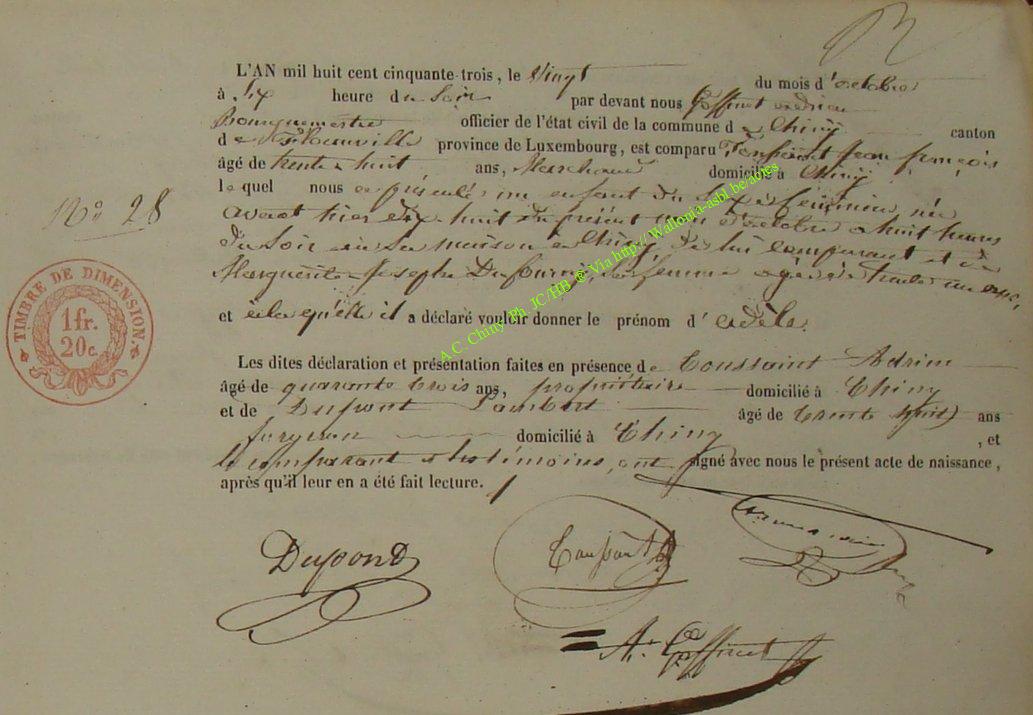 L'AN mil huit cent cinquante-trois, le vingt du mois d'octobre
à six heure du soir par devant nous Goffinet Adrien
Bourguemestre officier de l'état civil de la commune de Chiny canton
de province de Luxembourg, est comparu Toussaint Jean françois
âgé de trente huit ans, Marchand domicilié à Chiny
lequel nous a présenté un enfant du sexe féminin né
avant hier dix huit du présent mois d'octobre a huit heures
du soir en sa maison a Chiny de lui comparant et de
Marguerite Josephe Dufourny, sa femme agée de trente un ans,
et auquel il a déclaré vouloir donner le prénom d'Adèle.
Les dites déclaration et présentation faites en présence de Toussaint Adrien
âgé de quarante trois ans, propriétaire domicilié à Chiny
et de Dupont Lambert âgé de trente huit ans
forgeron domicilié à Chiny , et
le comparant et les témoins, ont signé avec nous le présent acte de naissance,
après qu'il leur en a été fait lecture.
N° 28
TIMBRE DE DIMENSION.
1 fr.
20 c.
A.C. Chiny Ph. JC/HB ® Via http://Wallonia-asbl.be/actes
Dupond
Toussaint
A. Goffinet